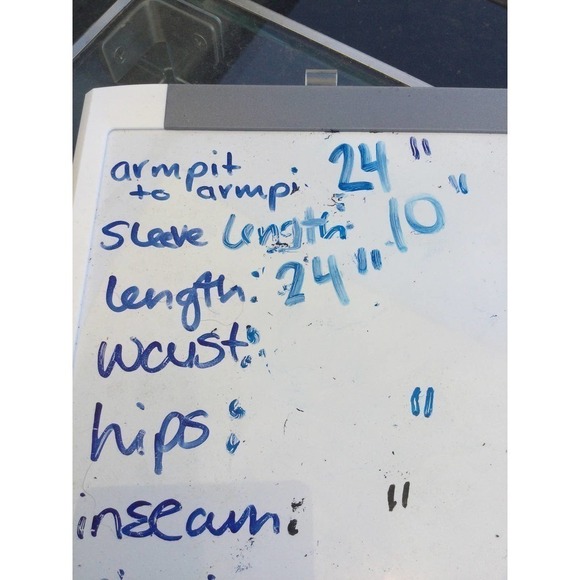 armpit
to armpi: 24"
Sleeve length: 10"
length: 24"
waist:
hips: "
inseam: "